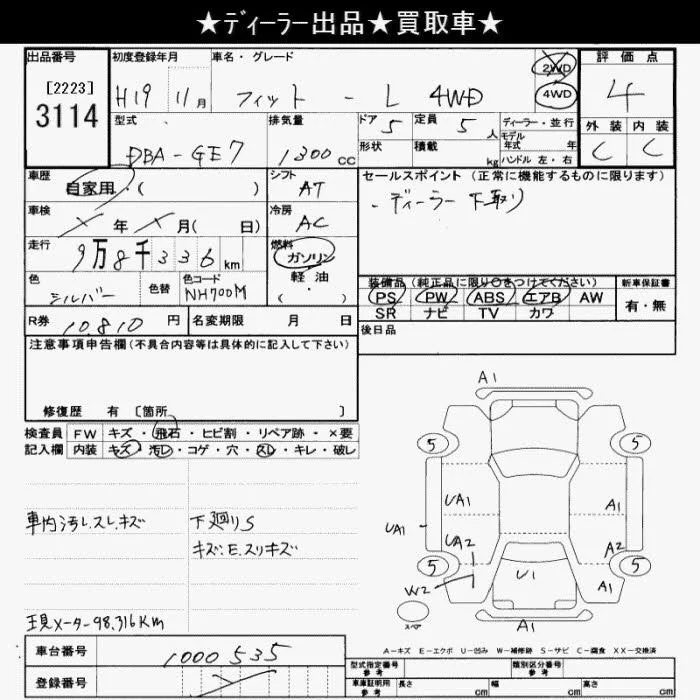 ★ディーラー出品★買取車★
出品番号 初度登録年月 車名・グレード 2WD 評価点
[2223] H19 11月 フィット - L 4WD 4WD 4
3114 型式 排気量 ドア 5 定員 5人 ディーラー・並行 外装 内装
DBA-GE7 1300cc 形状 積載 kg モデル年式 年式 C C
ハンドル 左・右
車歴 自家用・( ) シフト AT セールスポイント(正常に機能するものに限ります)
車検 × 年 × 月( 日) 冷房 AC - ディーラー下取り
走行 9万8千336km 燃料 ガソリン
軽・油
・
( )
色 シルバー 色替 色コード NH700M 装備品(純正品に限り○をつけてください) 新車保証書
PS PW ABS エアB AW 有・無
SR ナビ TV カワ
R券 10810円 名変期限 月 日 後日品
注意事項申告欄(不具合内容等は具体的に記入して下さい)
修復歴 有 [箇所 ]
検査員 FW キズ・飛石・ヒビ割・リペア跡・×要
記入欄 内装 キズ・汚レ・コゲ・穴・スレ・キレ・破レ
A1
5 5
UA1 A1
UA1
UA2 A2
5 5
W2 U1 A1
スペア A1
車内汚レ.スレ.キズ 下廻りS
キズ.E.スリキズ
現メーター98,316Km
A-キズ E-エクボ U-凹み W-補修跡 S-サビ C-腐食 XX-交換済
車台番号 1000535 型式指定番号 参考 類別区分番号 参考
登録番号 車庫証明用 参考 長さ cm 幅 cm 高さ cm